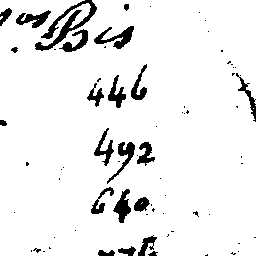 Bis
446
492
640